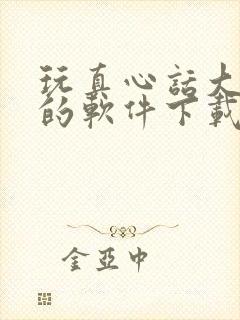 玩真心話大
的軟件下載
金亞中